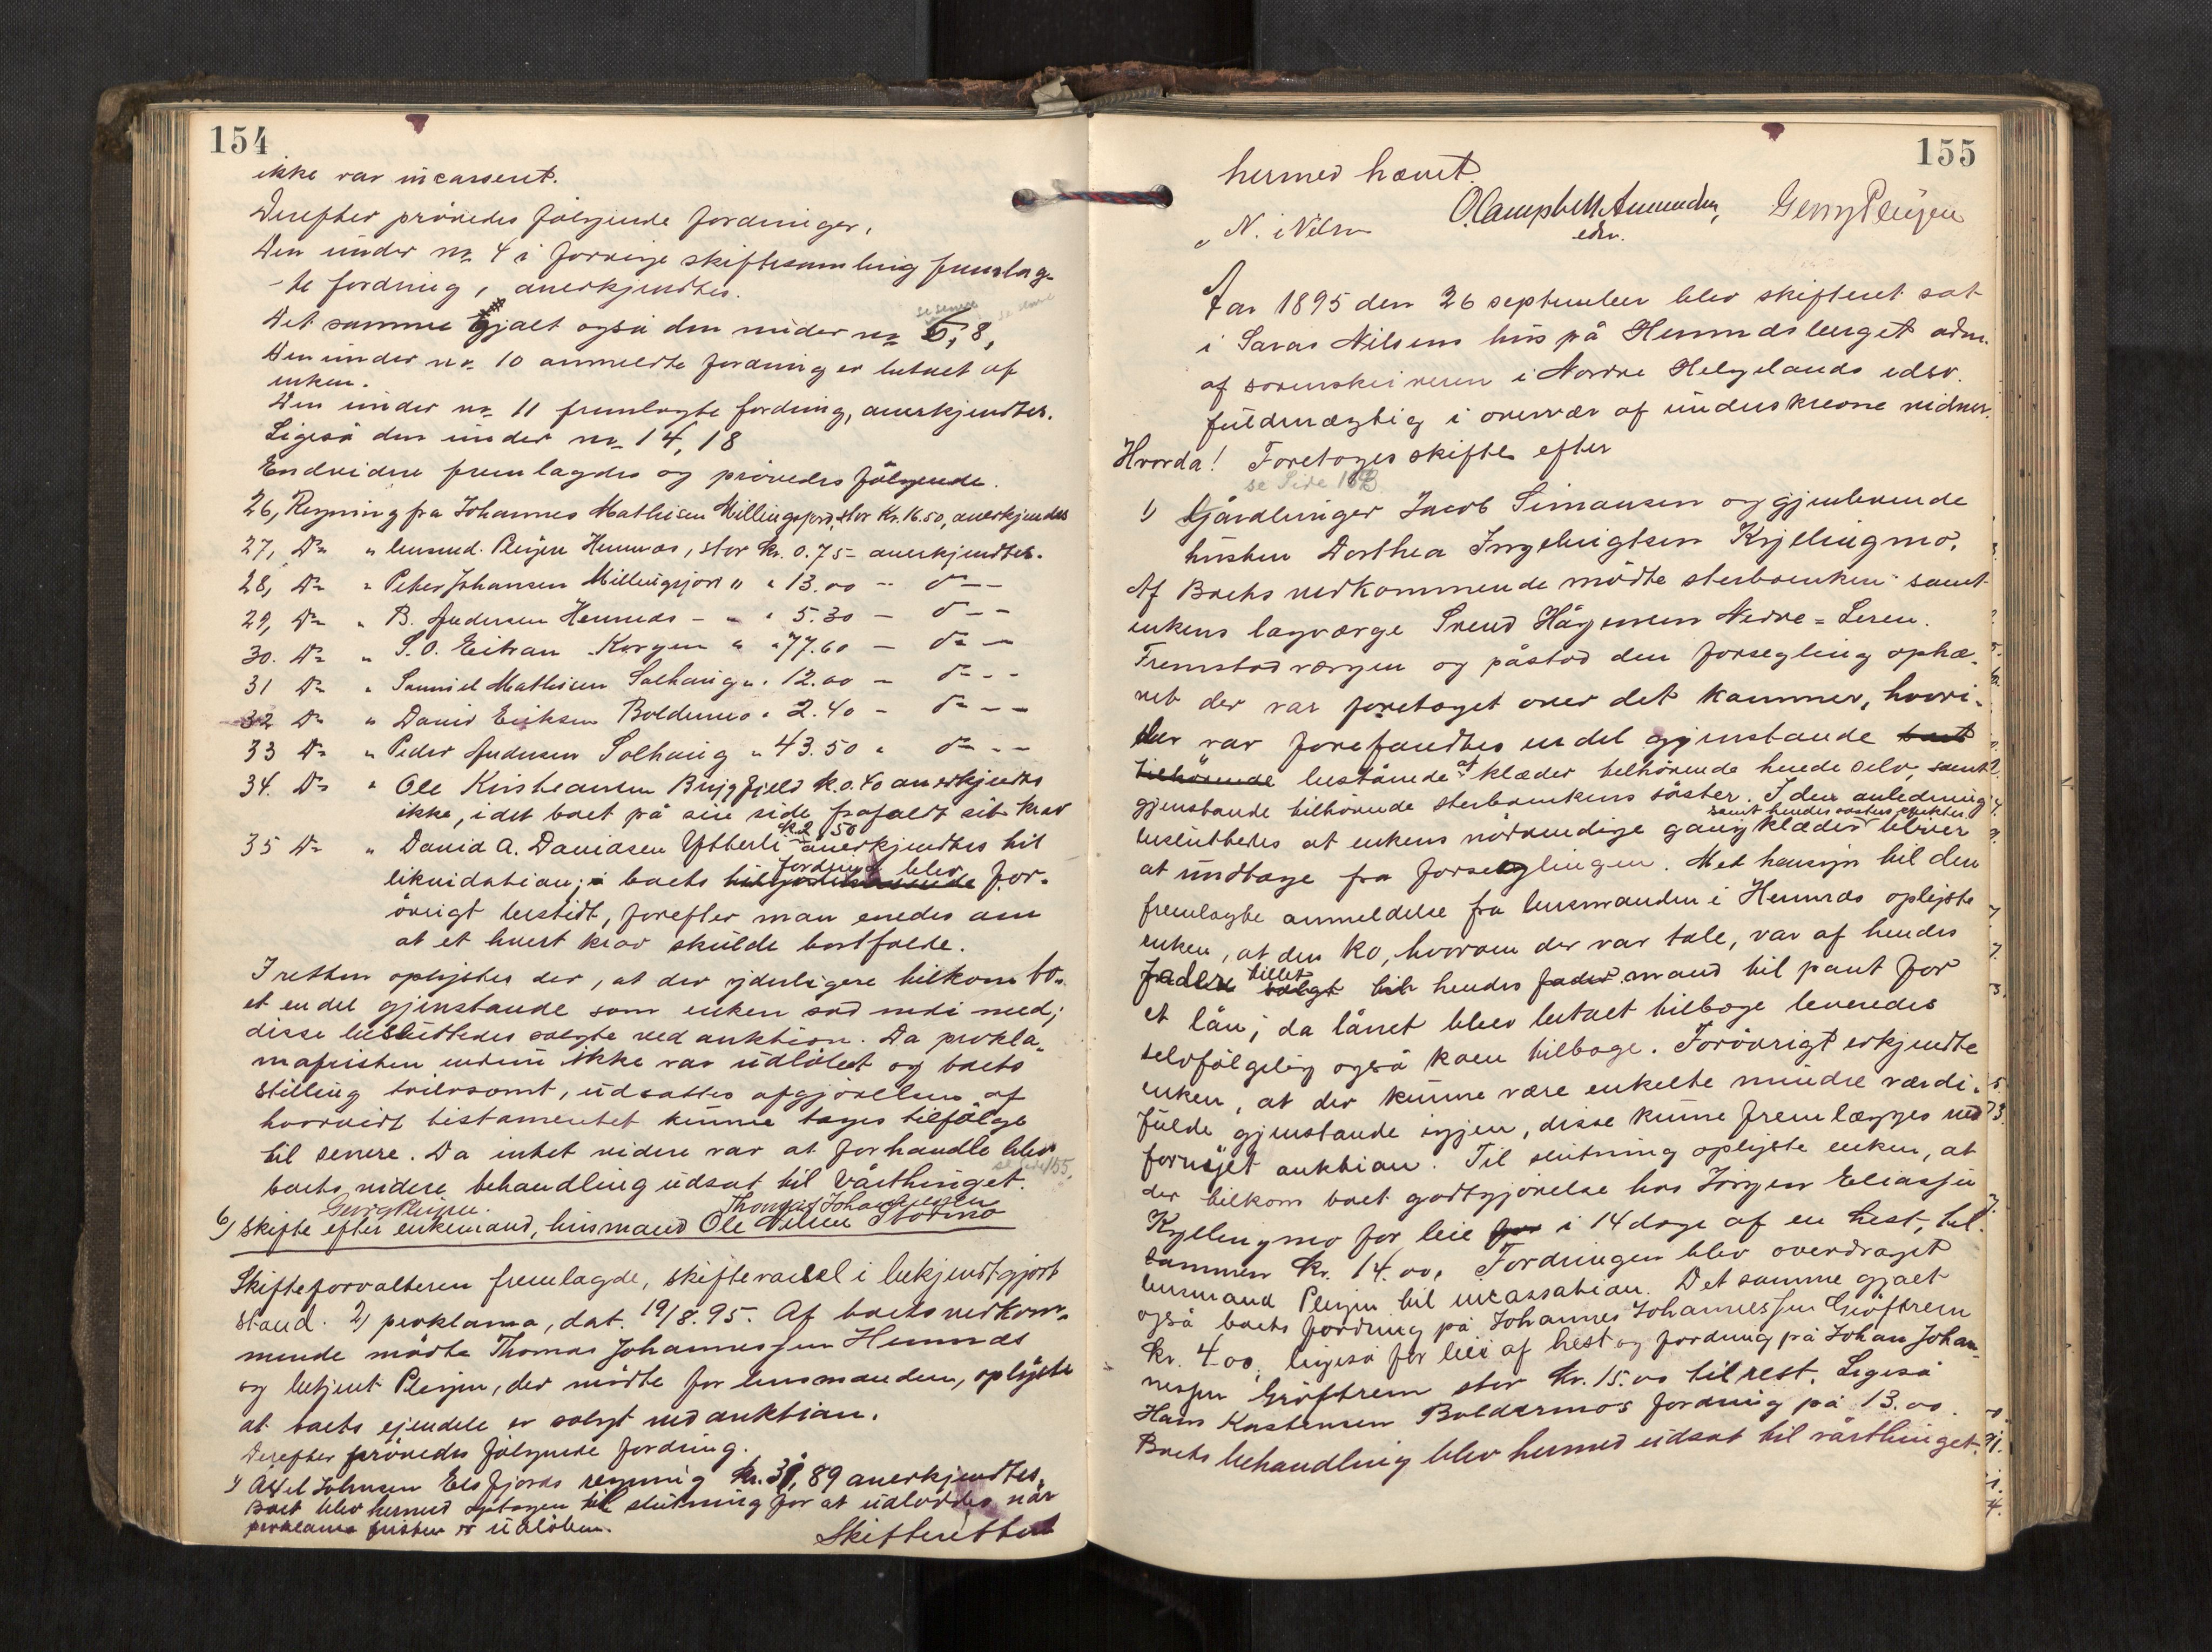 154
ikke var incasseret.
Derefter prövedes fölgende fordringer,
Den under no 4 i forrige skiftesamling fremlag-
te fordring, anerkjendtes.
Det samme gjalt også den under no 6, 8,
Den under no 10 anmeldte fordring er betalt af
enken.
Den under no 11 fremlagte fordring, anerkjendtes.
Ligeså den under no 14, 18
Endvidere fremlagdes og prövedes fölgende.
26, Regning fra Johannes Mathisen Millingsjord, stor Kr. 16.50, anerkjendes
27, Do " lensmd. Plejen Hemnæs, stor kr. 0.75 - anerkjendtes.
28, Do " Peter Johansen Millingsjord " " 13.00 - do -
29, Do " B. Andersen Hemnæs - " " 5.30 - do -
30. Do " S. O. Eitran Korgen " " 77.60 - do -
31 Do " Samuel Mathisen Solhaug " " 12.00 - do -
32 Do " David Eriksen Boldermo " 2.40 - do -
33 Do " Peder Andersen Solhaug " 43.50 " do -
34. Do " Ole Kristiansen Bryggfjeld k. 0.40 anerkjendtes
ikke, idet boet på sin side frafaldt sit krav
35 Do " David A. Davidsen Ytterli kr 2.50 anerkjendtes til
likvidation; boets fordring blev for-
övrigt bestridt, hvorefter man enedes om
at et hvert krav skulde bortfalde.
I retten oplystes der, at der yderligere tilkom bo-
et en del gjenstande som enken sad inde med;
disse besluttedes solgte ved auktion. Da prokla-
mafristen endnu ikke var udlöbet og boets
stilling tvilsomt, udsattes afgjörelsen af
hvorvidt testamentet kunne tages tilfölge
til senere. Da intet videre var at forhandle blev
boets videre behandling udsat til Vårthinget.
se side 155
Georg Plejen. Thomas Johannesen
6) Skifte efter enkemand, husmand Ole Nilsen Stormo
Skifteforvalteren fremlagde, skiftevarsel i bekjendtgjort
stand. 2) proklama, dat. 19/8.95. Af boets vedkom-
mende mödte Thomas Johannessen Hemnæs
og betjent Plejen, der mödte for lensmanden, oplyste
at boets ejendele er solgt ved auktion.
Derefter prövedes fölgende fordring.
1) Axel Johnsen Elsfjords regning kr. 31,89 anerkjendtes.
Boet blev hermed optagen til slutning for at udloddes når
proklama fristen er udlöben.
Skifteretten
155
hermed hævet.
N. Nilsen O. Campbell Amundsen, edsv. Georg Plejen
Aar 1895 den 26 september blev skifteret sat
i Saras Nilsens hus på Hemnæsberget adm.
af sorenskriveren i Nordre Helgelands edsv.
fuldmægtig i overvær af underskrevne vidner.
Hvorda! Foretoges skifte efter
se Side 163
1) Gårdbruger Jacob Simonsen og gjenlevende
hustru Dorthea Ingebrigtsen Kyllingmo.
Af Boets vedkommende mödte sterboenken samt
enkens lagværge Svend Hågensen Nedre=Leren.
Fremstod værgen og påstod den forsegling ophæ-
vet der var foretaget over det kammer, hvori-
der var forefandtes en del gjenstande boet
tilhörende bestående af klæder tilhörende hende selv, samt
gjenstande tilhörende sterboenkens söster. I den anledning
besluttedes at enkens nödvendige gangklæder samt hendes sösters effekter bliver
at undtage fra forseglingen. Med hensyn til den
fremlagte anmeldelse fra lensmanden i Hemnæs oplyste
enken, at den ko, hvorom der var tale, var af hendes
fader stillet hendes mand til pant for
et lån; da lånet blev betalt tilbage leveredes
selvfölgelig også koen tilbage. Forövrigt erkjendte
enken, at der kunne være enkelte mindre værdi-
fulde gjenstande igjen, disse kunne fremlægges ved
fornyet auktion. Til slutning oplyste enken, at
der tilkom boet godtgjörelse hos Jörgen Eliassen
Kyllingmo for leie for i 14 dage af en hest, til-
sammen kr. 14.00. Fordringen blev overdraget
lensmand Plejen til incassation. Det samme gjalt
også boets fordring på Johannes Johannessen Gröftrem
kr. 4.00, ligeså for leie af hest og fordring på Johan Johan-
nessen Gröftrem stor kr. 15.00 til rest. Ligeså
Hans Kastensen Boldermos fordring på 13.00.
Boets behandling blev hermed udsat til vårthinget.